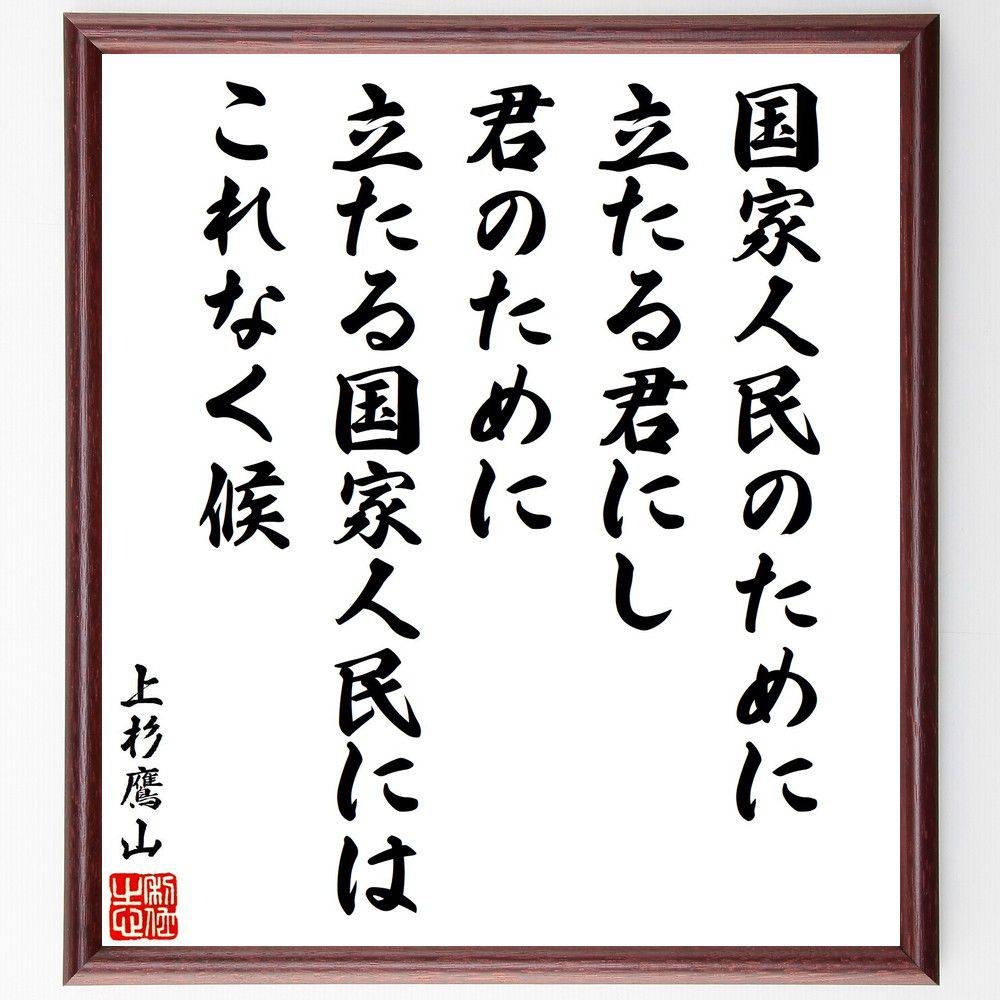 国家人民のために
立たる君にし
君のために
立たる国家人民には
これなく候
上杉鷹山